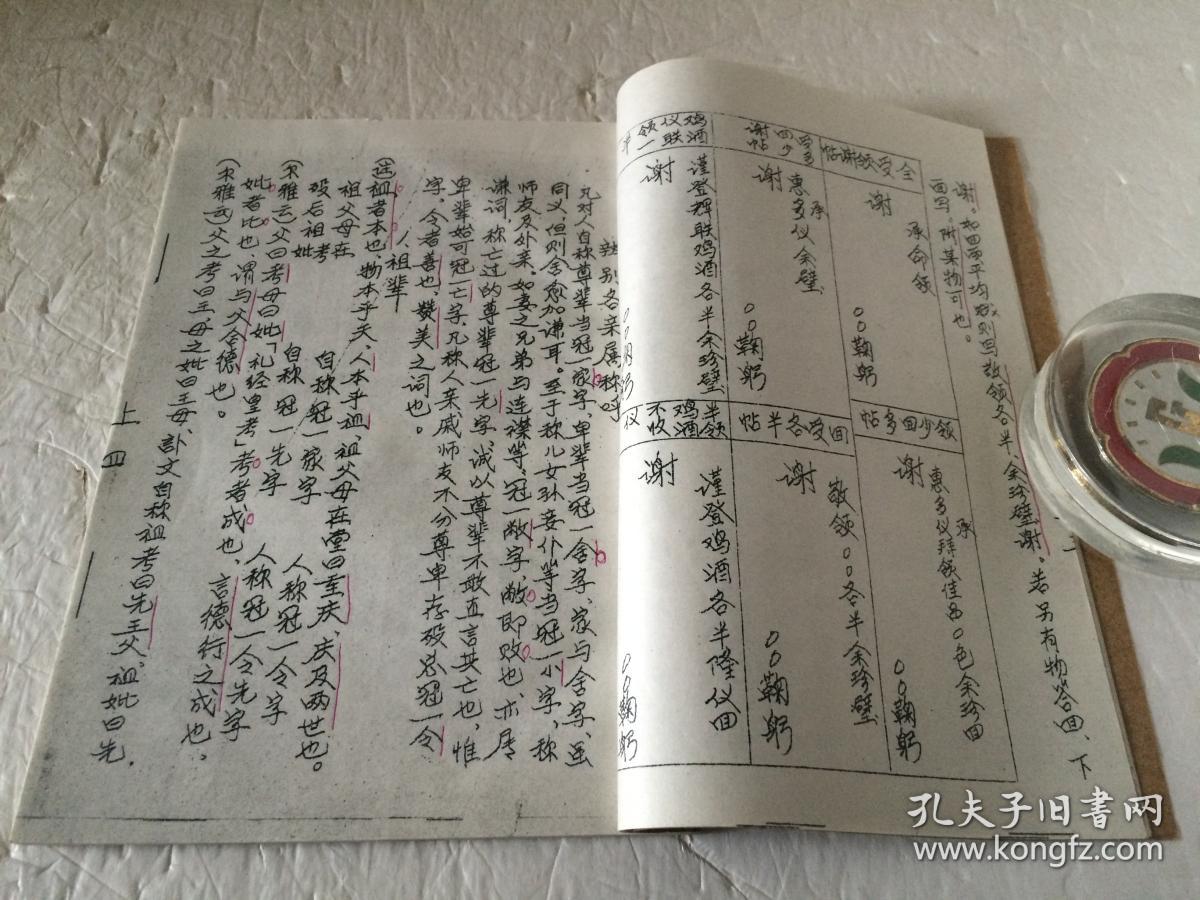 谢。如回两平均 则写敬领各半、余珍璧、谢。若另有物答回、下
画写。附某物可也。
全受领谢帖
谢 承命领
○○鞠躬
受多回少谢帖
谢 承惠多仪余璧
○○鞠躬
鸡酒联仪一领半
谢 谨登辉联鸡酒各半余珍璧
领少回多帖
谢 承惠多仪拜领佳品○色余珍回
○○鞠躬
回受各半帖
谢 敬领○○各半余珍璧
○○鞠躬
半领鸡酒不收仪
谢 谨登鸡酒各半隆仪回
○○鞠躬
辨别各亲属称呼
凡对人自称尊辈当冠一家字、卑辈当冠一舍字、家与舍字、虽
同义、但则舍愈加谦耳。至于称儿女孙妾仆等当冠一小字、称
师友及外亲、如妻之兄弟与连襟等、冠一敝字、敝即败也、亦属
谦词、称亡过的尊辈冠一先字、诚以尊辈不敢直言其亡也、惟
卑辈始可冠一亡字、凡称人亲戚师友不分尊卑存殁总冠一令
字、令者善也、赞美之词也。
人祖辈
(注)祖者本也、物本乎天、人本乎祖、祖父母在堂曰重庆、庆及两世也。
祖父母在 自称冠一家字 人称冠一令字
殁后祖考祖妣 自称冠一先字 人称冠一令先字
(尔雅云)父曰考母曰妣「礼经皇考」考者成也、言德行之成也、
妣者比也、谓与父合德也。
(尔雅云)父之考曰王、母之妣曰王母、讣文自称祖考曰先王父、祖妣曰先
上 四
孔夫子旧书网
www.kongfz.com